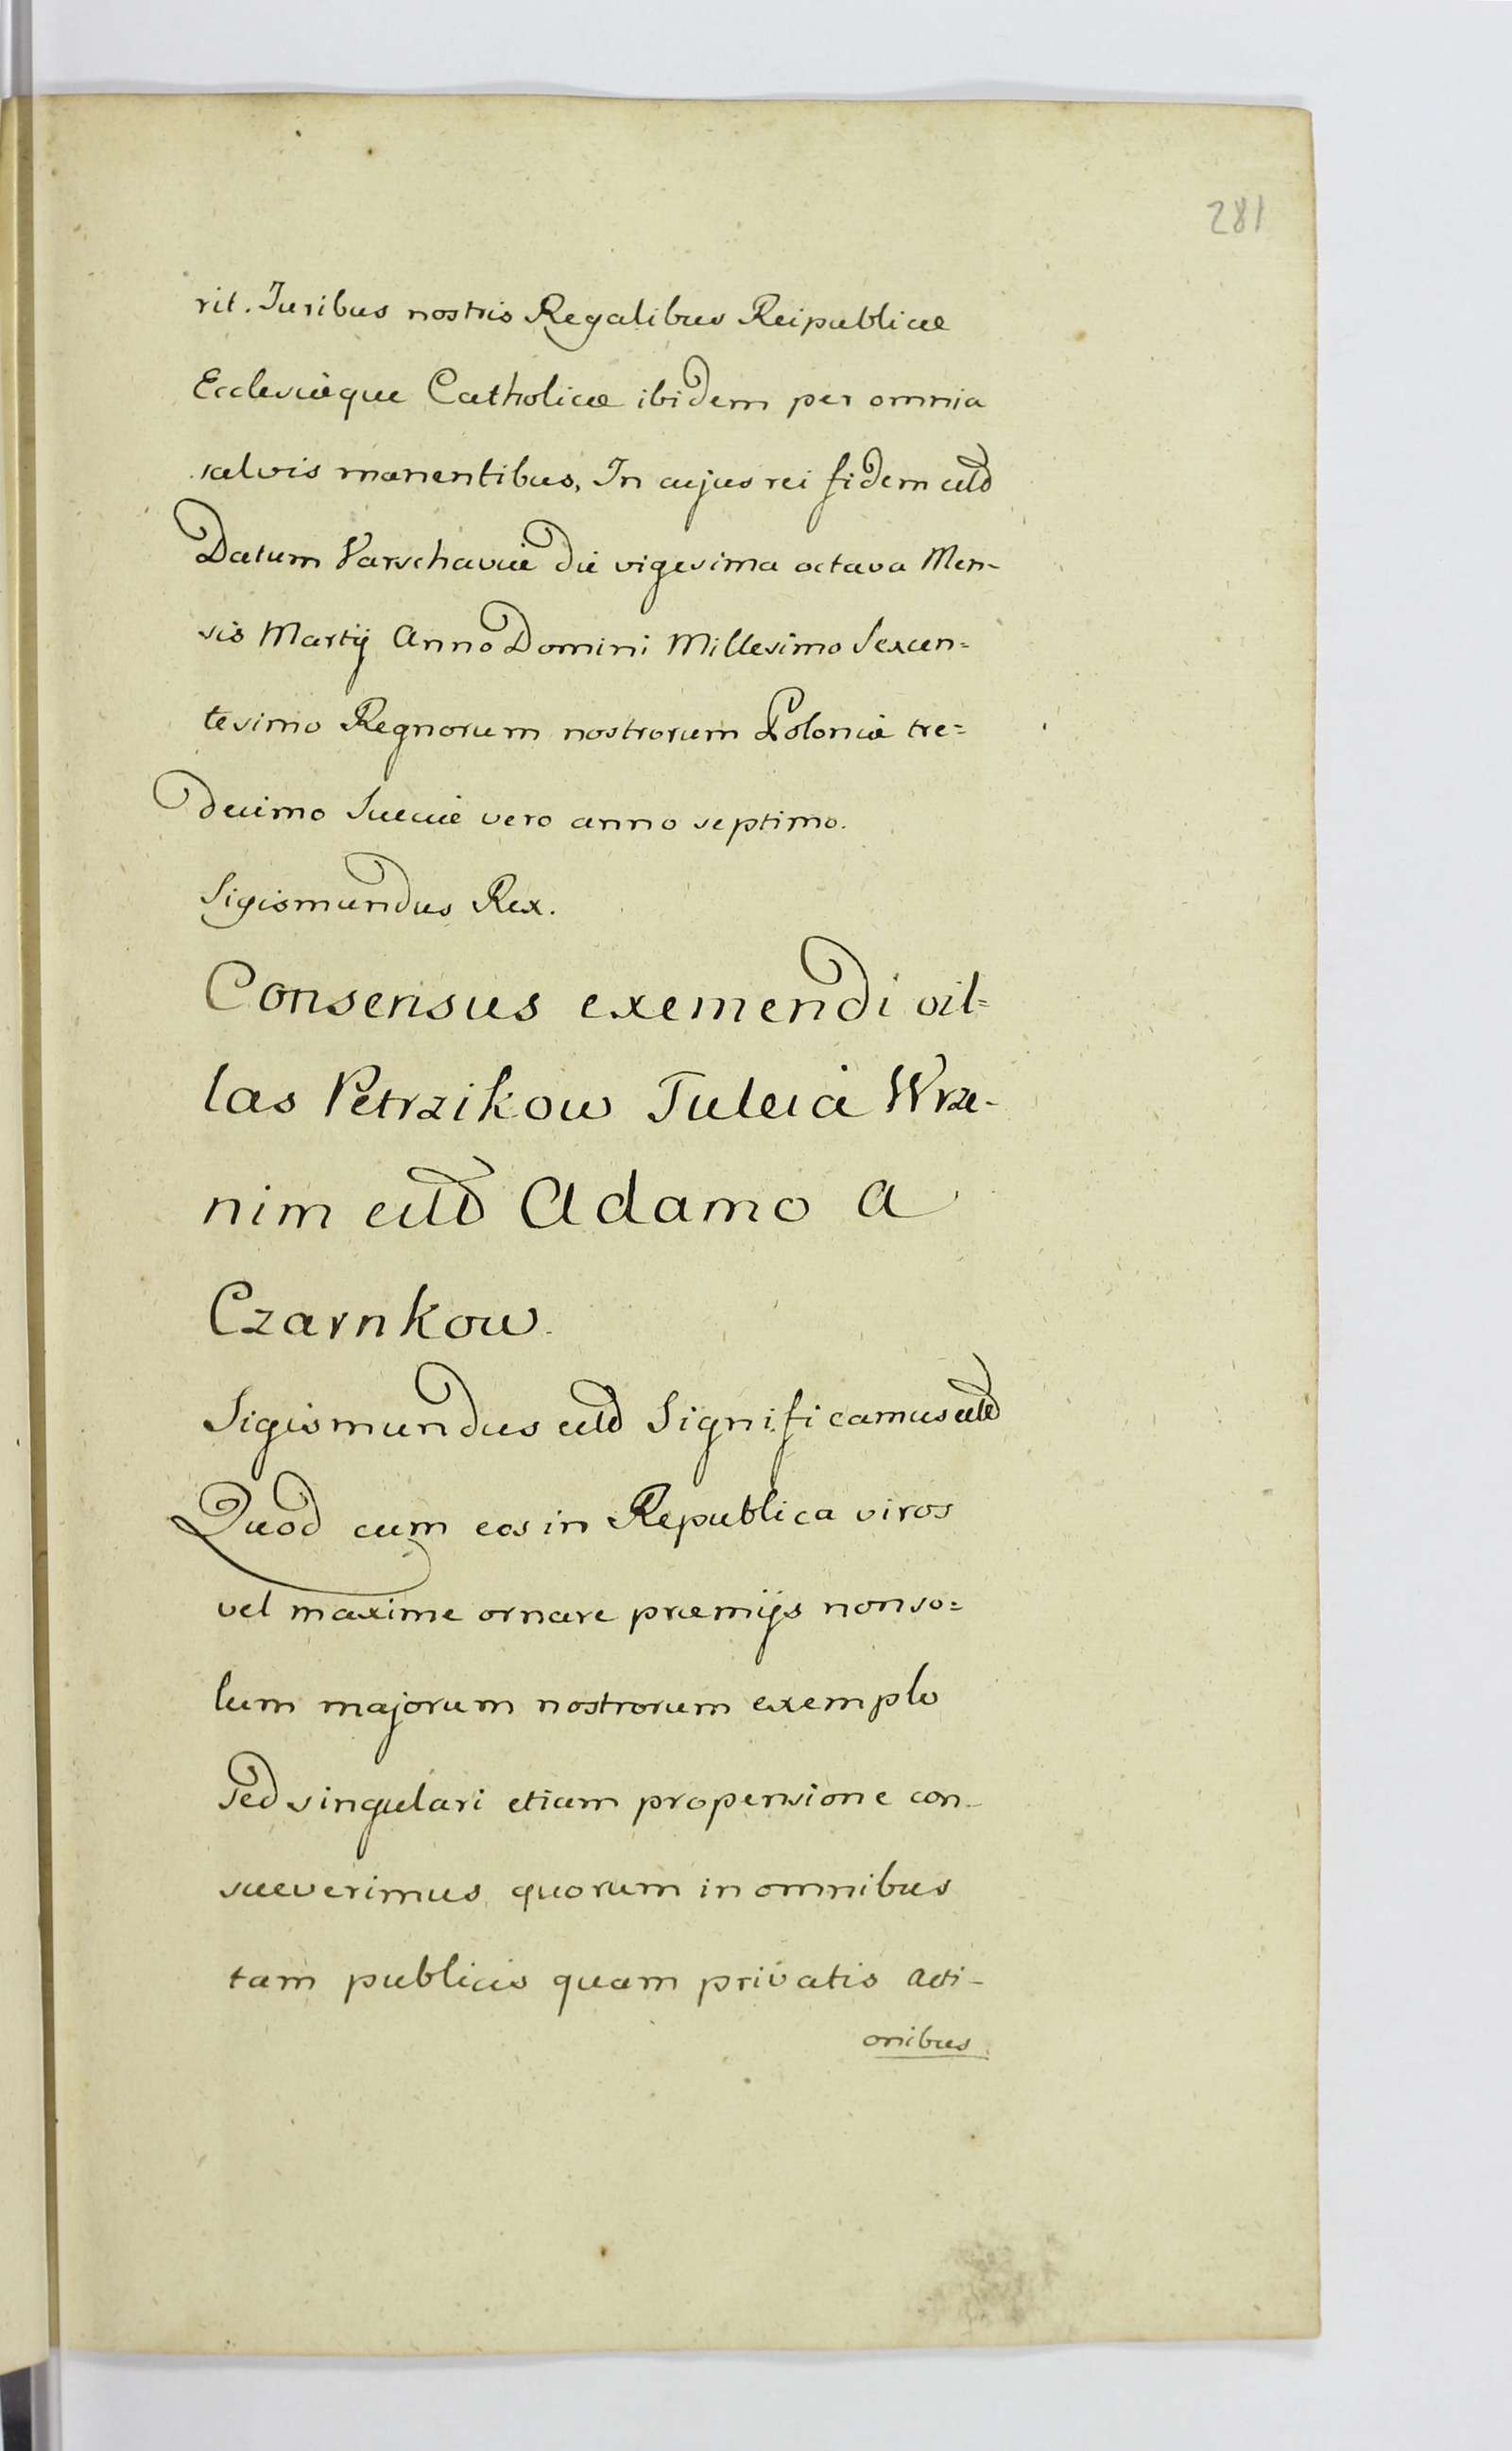 281
rit. Juribus nostris Regalibus Reipublicæ
Ecclesiæque Catholicæ ibidem per omnia
salvis manentibus, In cujus rei fidem etc
Datum Varschaviæ die vigesima octava Men-
sis Martij Anno Domini Millesimo Sexcen=
tesimo Regnorum nostrorum Poloniæ tre=
decimo Sueciæ vero anno septimo.
Sigismundus Rex.
Consensus exemendi vil=
las Petrzikow Tuleia Wrze-
nim etc Adamo a
Czarnkow.
Sigismundus etc Significamus etc
Quod cum eos in Republica viros
vel maxime ornare præmijs non so=
lum majorum nostrorum exemplo
sed singulari etiam propensione con-
sueverimus quorum in omnibus
tam publicis quam privatis acti-
onibus